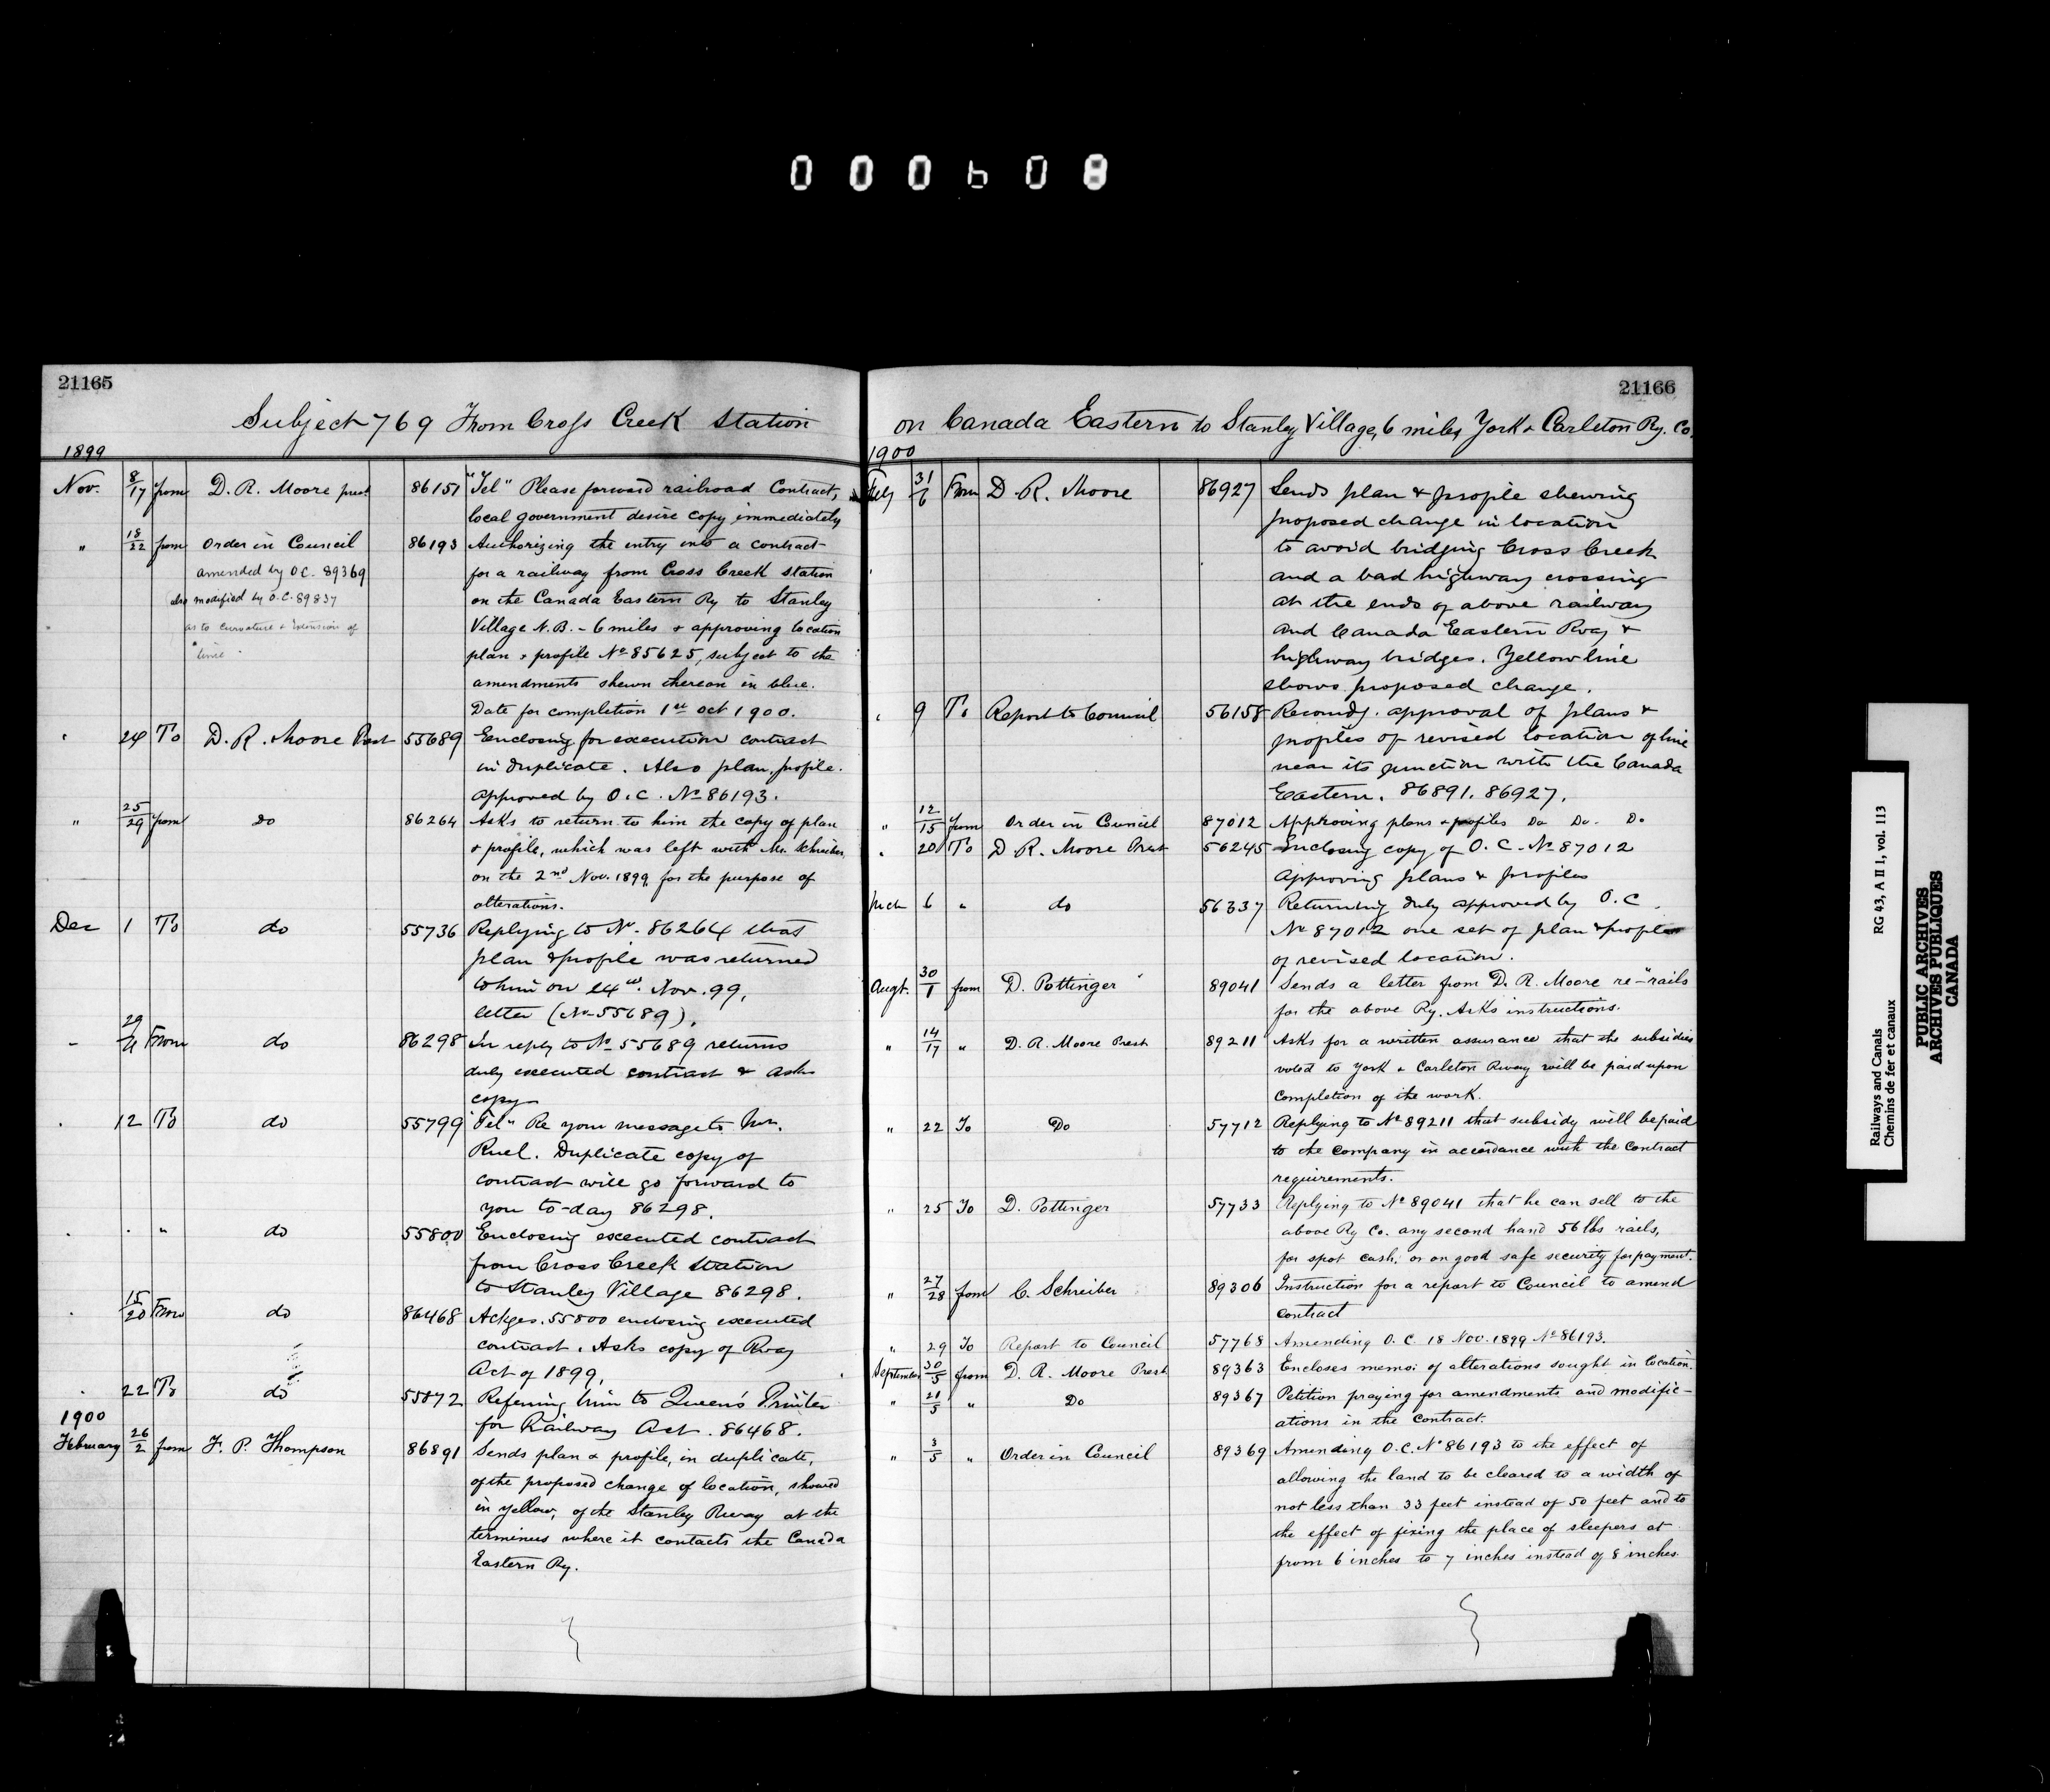 000608
21165
Subject 769 From Cross Creek Station
1899
Nov. 8/17 from D. R. Moore prest 86151 "Tel" Please forward railroad Contract,
local government desire copy immediately
" 18/22 from Order in Council 86193 Authorizing the entry into a contract
amended by O.C. 89369 for a railway from Cross Creek station
also modified by O.C. 89837 on the Canada Eastern Ry to Stanley
as to curvature & extension of Village N.B. - 6 miles & approving location
time plan & profile No 85625, subject to the
amendments shewn thereon in blue.
Date for completion 1st Oct 1900.
" 24 To D. R. Moore Prest 55689 Enclosing for execution contract
in duplicate. Also plan, profile.
approved by O.C. No 86193.
" 25/29 from do 86264 Asks to return to him the copy of plan
& profile, which was left with Mr. Schreiber
on the 2nd Nov. 1899, for the purpose of
alterations.
Dec 1 To do 55736 Replying to No. 86264 that
plan & profile was returned
to him on 24th Nov. 99,
letter (No 55689).
- 29/4 From do 86298 In reply to No 55689 returns
duly executed contract & asks
copy
. 12 To do 55799 "Tel" Re your message to Mr.
Ruel. Duplicate copy of
contract will go forward to
you to-day 86298.
. . " do 55800 Enclosing executed contract
from Cross Creek station
to Stanley Village 86298.
. 15/20 From do 86468 Ackges. 55800 enclosing executed
contract. Asks copy of Rway
Act of 1899.
. 22 To do 55872 Referring him to Queen's Printer
for Railway Act. 86468.
1900
February 26/2 from F. P. Thompson 86891 Sends plan & profile, in duplicate,
of the proposed change of location, showed
in yellow, of the Stanley Rway at the
terminus where it contacts the Canada
Eastern Ry.
21166
on Canada Eastern to Stanley Village, 6 miles, York & Carleton Ry. Co.
1900
Feby 31/6 From D. R. Moore 86927 Sends plan & profile shewing
proposed change in location
to avoid bridging Cross Creek
and a bad highway crossing
at the ends of above railway
and Canada Eastern Rway &
highway bridges. Yellow line
shows proposed change.
. 9 To Report to Council 56158 Recomdg. approval of plans &
profiles of revised location of line
near its junction with the Canada
Eastern. 86891. 86927.
" 12/15 from Order in Council 87012 Approving plans & profiles Do Do. Do
. 20 To D. R. Moore Prest 56245 Enclosing copy of O.C. No 87012
approving plans & profiles
Mch 6 " do 56337 Returning duly approved by O.C.
No 87012 one set of plan & profiles
of revised location.
Augt. 30/1 from D. Pottinger 89041 Sends a letter from D. R. Moore re "rails
for the above Ry. Asks instructions.
" 14/17 " D. R. Moore Prest 89211 Asks for a written assurance that the subsidies
voted to York & Carleton Rway will be paid upon
completion of the work.
" 22 To Do 57712 Replying to No 89211 that subsidy will be paid
to the Company in accordance with the contract
requirements.
" 25 To D. Pottinger 57733 Replying to No 89041 that he can sell to the
above Ry Co. any second hand 56 lbs rails,
for spot cash, or on good safe security for payment.
" 27/28 from C. Schreiber 89306 Instruction for a report to Council to amend
contract
" 29 To Report to Council 57768 Amending O.C. 18 Nov. 1899 No 86193.
September 30/5 from D. R. Moore Prest 89363 Encloses memo: of alterations sought in location.
" 21/5 " Do 89367 Petition praying for amendments and modific-
ations in the contract.
" 3/5 " Order in Council 89369 Amending O.C. No 86193 to the effect of
allowing the land to be cleared to a width of
not less than 33 feet instead of 50 feet and to
the effect of fixing the place of sleepers at
from 6 inches to 7 inches instead of 8 inches.
Railways and Canals RG 43, A II 1, vol. 113
Chemins de fer et canaux
PUBLIC ARCHIVES
ARCHIVES PUBLIQUES
CANADA